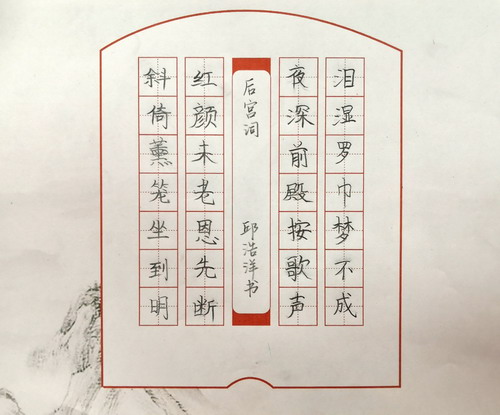 泪湿罗巾梦不成
夜深前殿按歌声
后宫词
邱浩洋书
红颜未老恩先断
斜倚薰笼坐到明